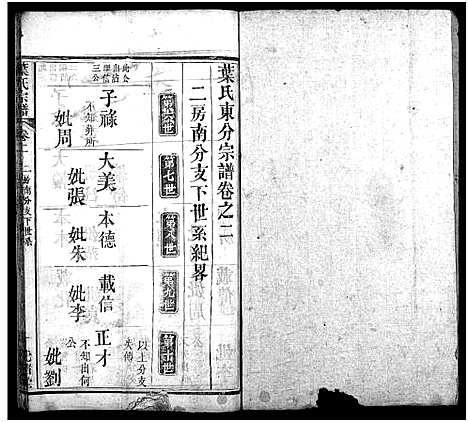 葉氏東分宗譜卷之二
二房南分支下世系紀畧
第六世
第七世
第八世
第九世
第十世
子祿
不知葬所
妣周
大美
妣張
本德
妣朱
載信
妣李
正才
不知由何公
妣劉
以上分支失傳
葉氏宗譜
卷二
房南分支下世系